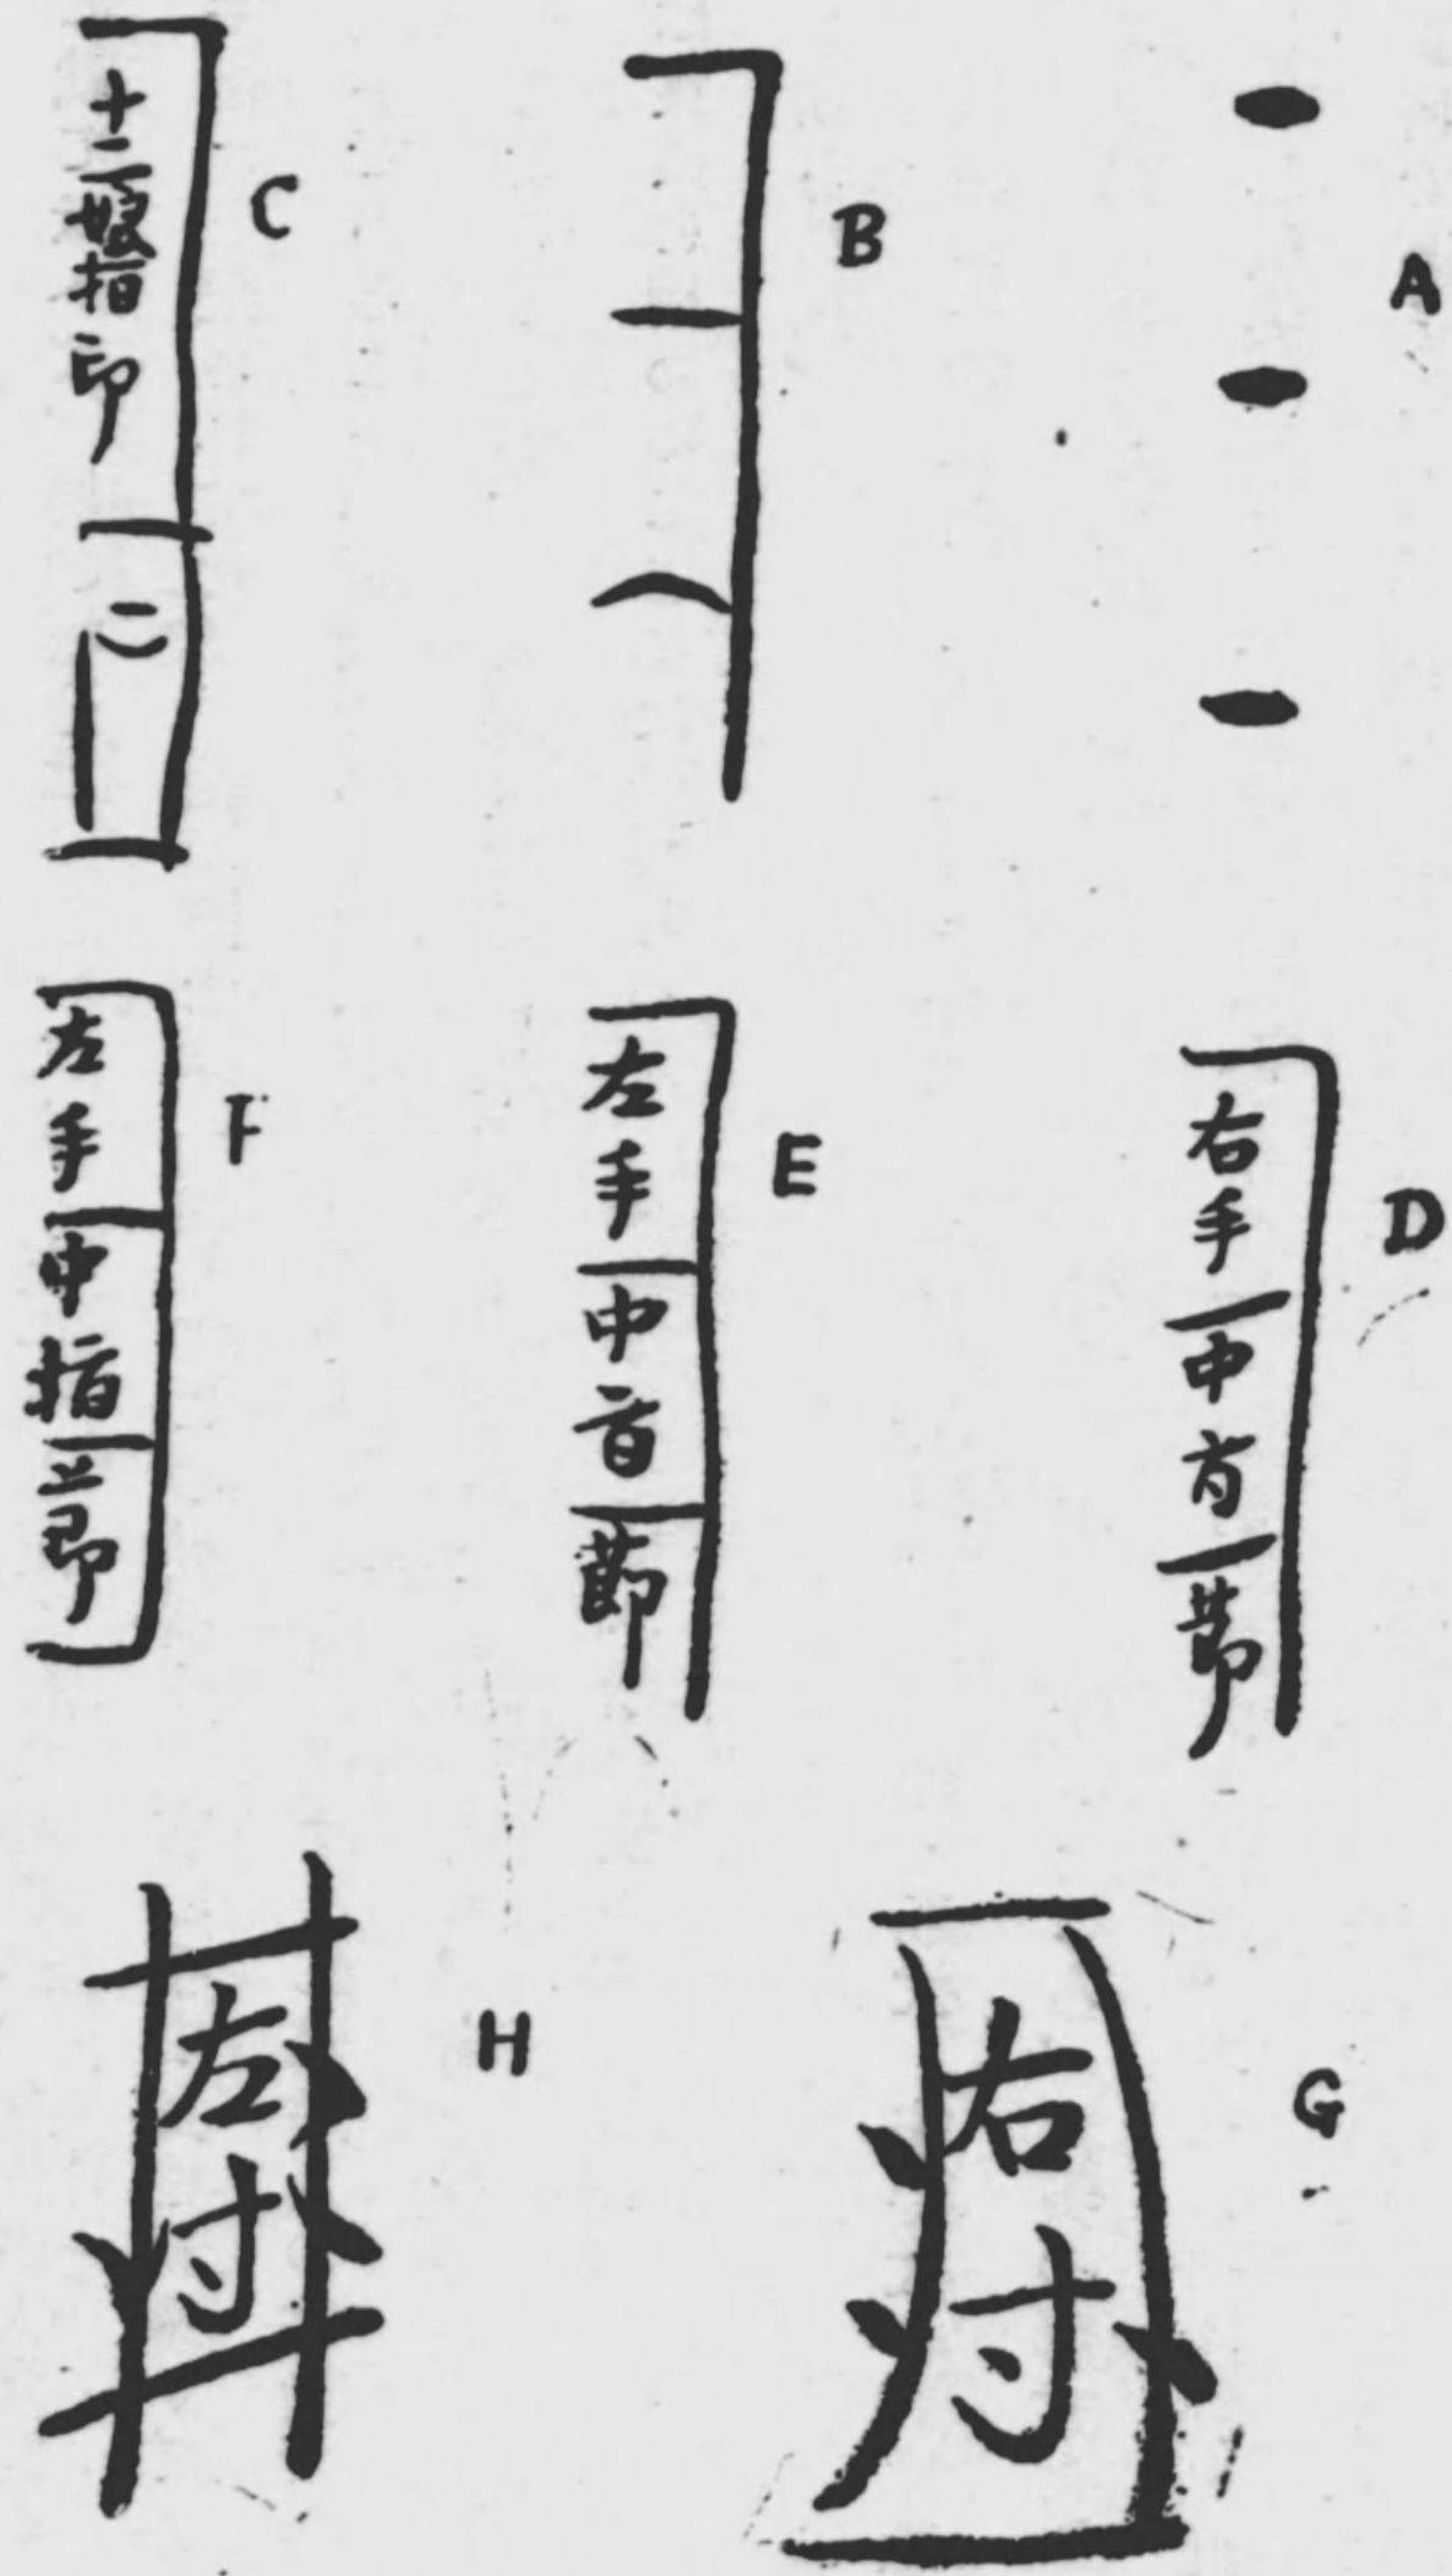 A
B
C
十二娘指印
(二)
D
右手中旨節
E
左手中旨節
F
左手中指節
G
右寸
H
左寸